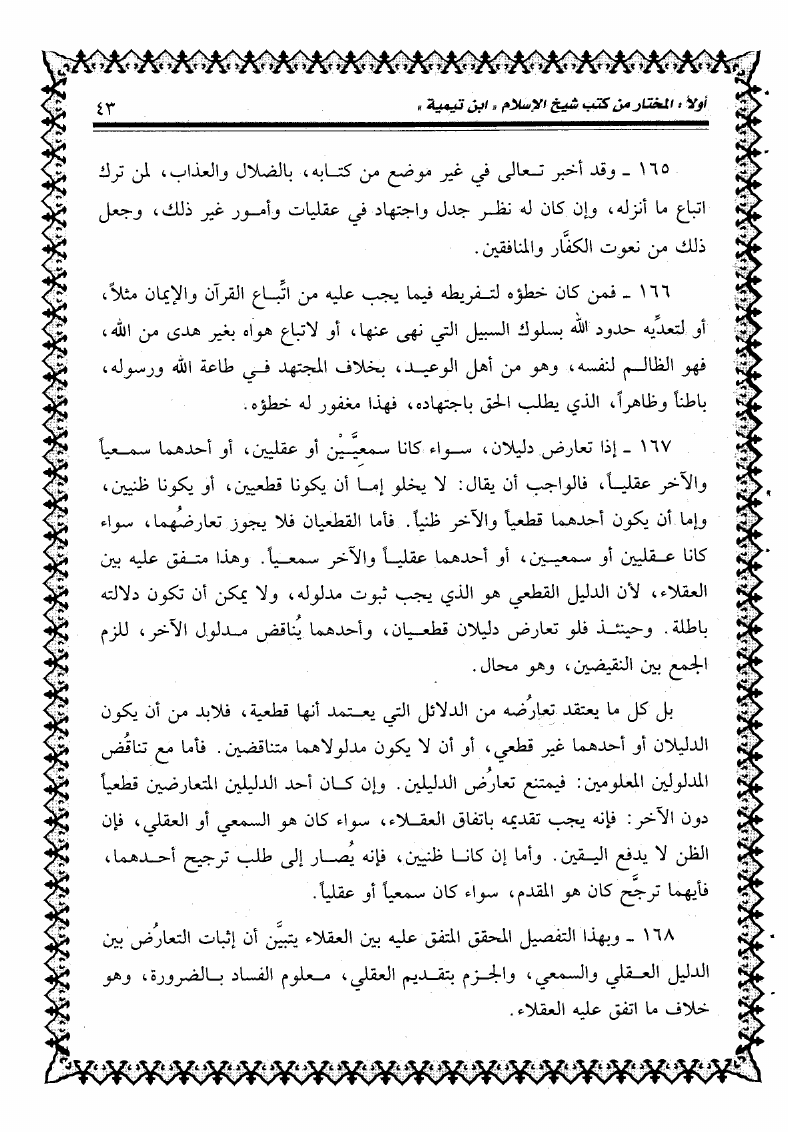 أولاً : المختار من كتب شيخ الإسلام « ابن تيمية » ٤٣
١٦٥ ـ وقد أخبر تعالى في غير موضع من كتابه، بالضلال والعذاب، لمن ترك
اتباع ما أنزله، وإن كان له نظر جدل واجتهاد في عقليات وأمور غير ذلك، وجعل
ذلك من نعوت الكفَّار والمنافقين.
١٦٦ ـ فمن كان خطؤه لتفريطه فيما يجب عليه من اتِّباع القرآن والإيمان مثلاً،
أو لتعدِّيه حدود الله بسلوك السبيل التي نهى عنها، أو لاتباع هواه بغير هدى من الله،
فهو الظالم لنفسه، وهو من أهل الوعيد، بخلاف المجتهد في طاعة الله ورسوله،
باطناً وظاهراً، الذي يطلب الحق باجتهاده، فهذا مغفور له خطؤه.
١٦٧ ـ إذا تعارض دليلان، سواء كانا سمعيَّيْن أو عقليين، أو أحدهما سمعياً
والآخر عقلياً، فالواجب أن يقال: لا يخلو إما أن يكونا قطعيين، أو يكونا ظنيين،
وإما أن يكون أحدهما قطعياً والآخر ظنياً. فأما القطعيان فلا يجوز تعارضُهما، سواء
كانا عقليين أو سمعيين، أو أحدهما عقلياً والآخر سمعياً. وهذا متفق عليه بين
العقلاء، لأن الدليل القطعي هو الذي يجب ثبوت مدلوله، ولا يمكن أن تكون دلالته
باطلة. وحينئذ فلو تعارض دليلان قطعيان، وأحدهما يُناقض مدلول الآخر، للزم
الجمع بين النقيضين، وهو محال.
بل كل ما يعتقد تعارُضه من الدلائل التي يعتمد أنها قطعية، فلابد من أن يكون
الدليلان أو أحدهما غير قطعي، أو أن لا يكون مدلولاهما متناقضين. فأما مع تناقُض
المدلولين المعلومين: فيمتنع تعارُض الدليلين. وإن كان أحد الدليلين المتعارضين قطعياً
دون الآخر: فإنه يجب تقديمه باتفاق العقلاء، سواء كان هو السمعي أو العقلي، فإن
الظن لا يدفع اليقين. وأما إن كانا ظنيين، فإنه يُصار إلى طلب ترجيح أحدهما،
فأيهما ترجَّح كان هو المقدم، سواء كان سمعياً أو عقلياً.
١٦٨ ـ وبهذا التفصيل المحقق المتفق عليه بين العقلاء يتبيَّن أن إثبات التعارُض بين
الدليل العقلي والسمعي، والجزم بتقديم العقلي، معلوم الفساد بالضرورة، وهو
خلاف ما اتفق عليه العقلاء.